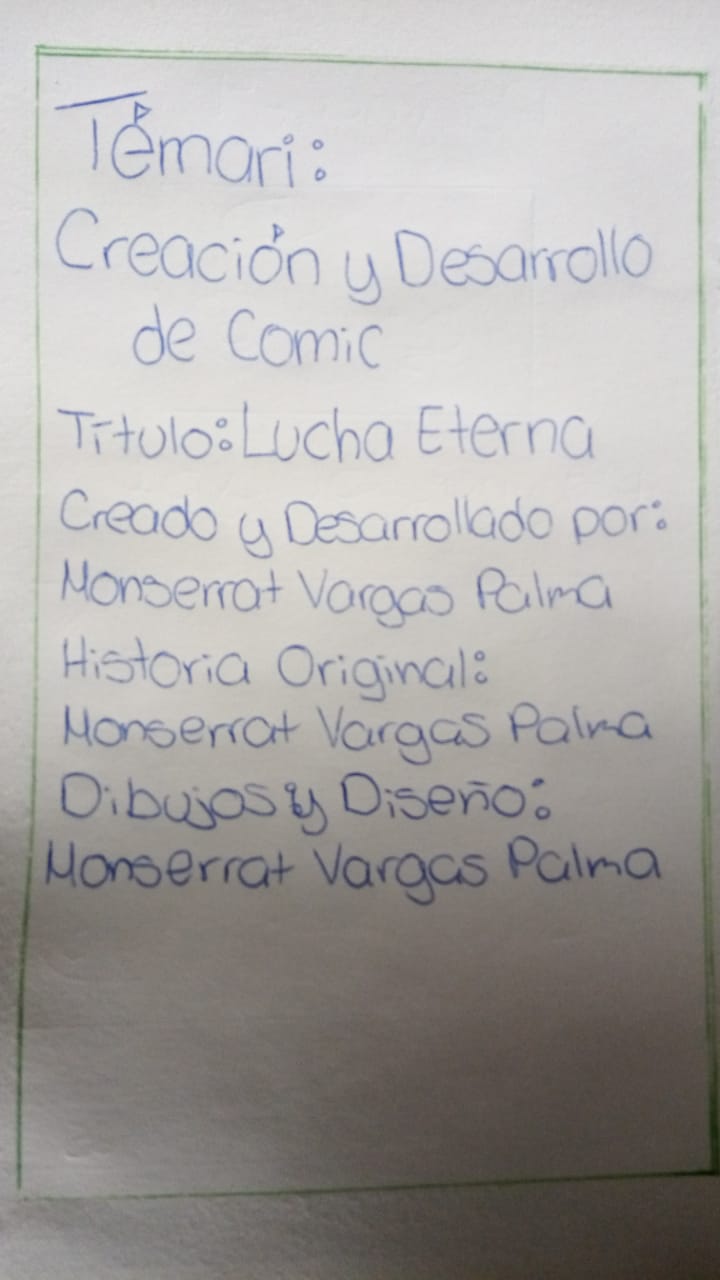 Témari:
Creación y Desarrollo
de Comic
Título: Lucha Eterna
Creado y Desarrollado por:
Monserrat Vargas Palma
Historia Original:
Monserrat Vargas Palma
Dibujos y Diseño:
Monserrat Vargas Palma